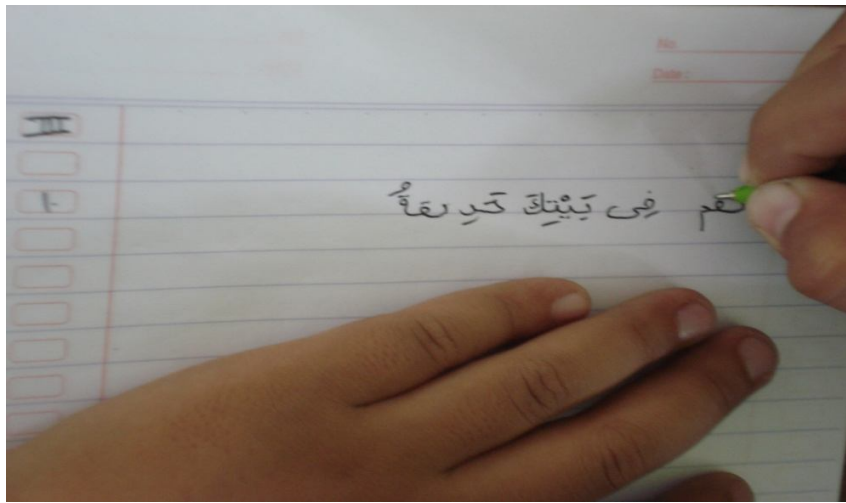 No
Date :
III
فِى بَيْتِكَ حَدِيقَةٌ